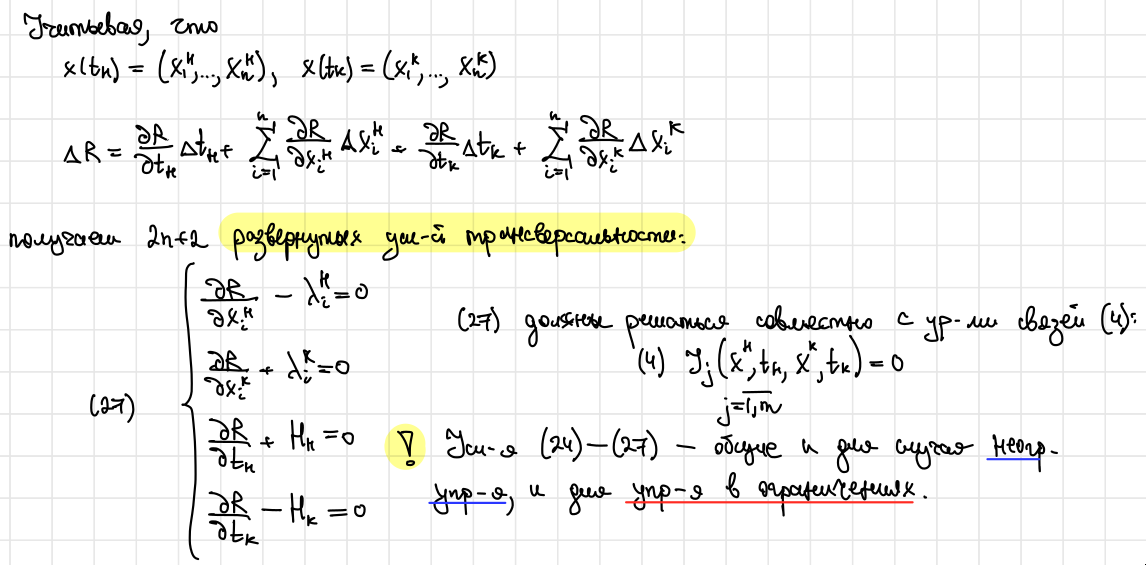 Учитывая, что
x(tн) = (x₁ᴴ,..., xₙᴴ), x(tк) = (x₁ᴷ,..., xₙᴷ)
ΔR = ∂R/∂tн Δtн + ∑ᵢ₌₁ⁿ ∂R/∂xᵢᴴ Δxᵢᴴ + ∂R/∂tк Δtк + ∑ᵢ₌₁ⁿ ∂R/∂xᵢᴷ Δxᵢᴷ
получаем 2n+2 развернутых усл-й трансверсальности:
(27)
∂R/∂xᵢᴴ − λᵢᴴ = 0
∂R/∂xᵢᴷ + λᵢᴷ = 0
∂R/∂tн + Hн = 0
∂R/∂tк − Hк = 0
(27) должны решаться совместно с ур-ми связей (4):
(4) Jⱼ(xᴴ, tн, xᴷ, tк) = 0
j=1,m
! Усл-я (24)−(27) − общие и для случая неогр.
упр-я, и для упр-я в ограничениях.